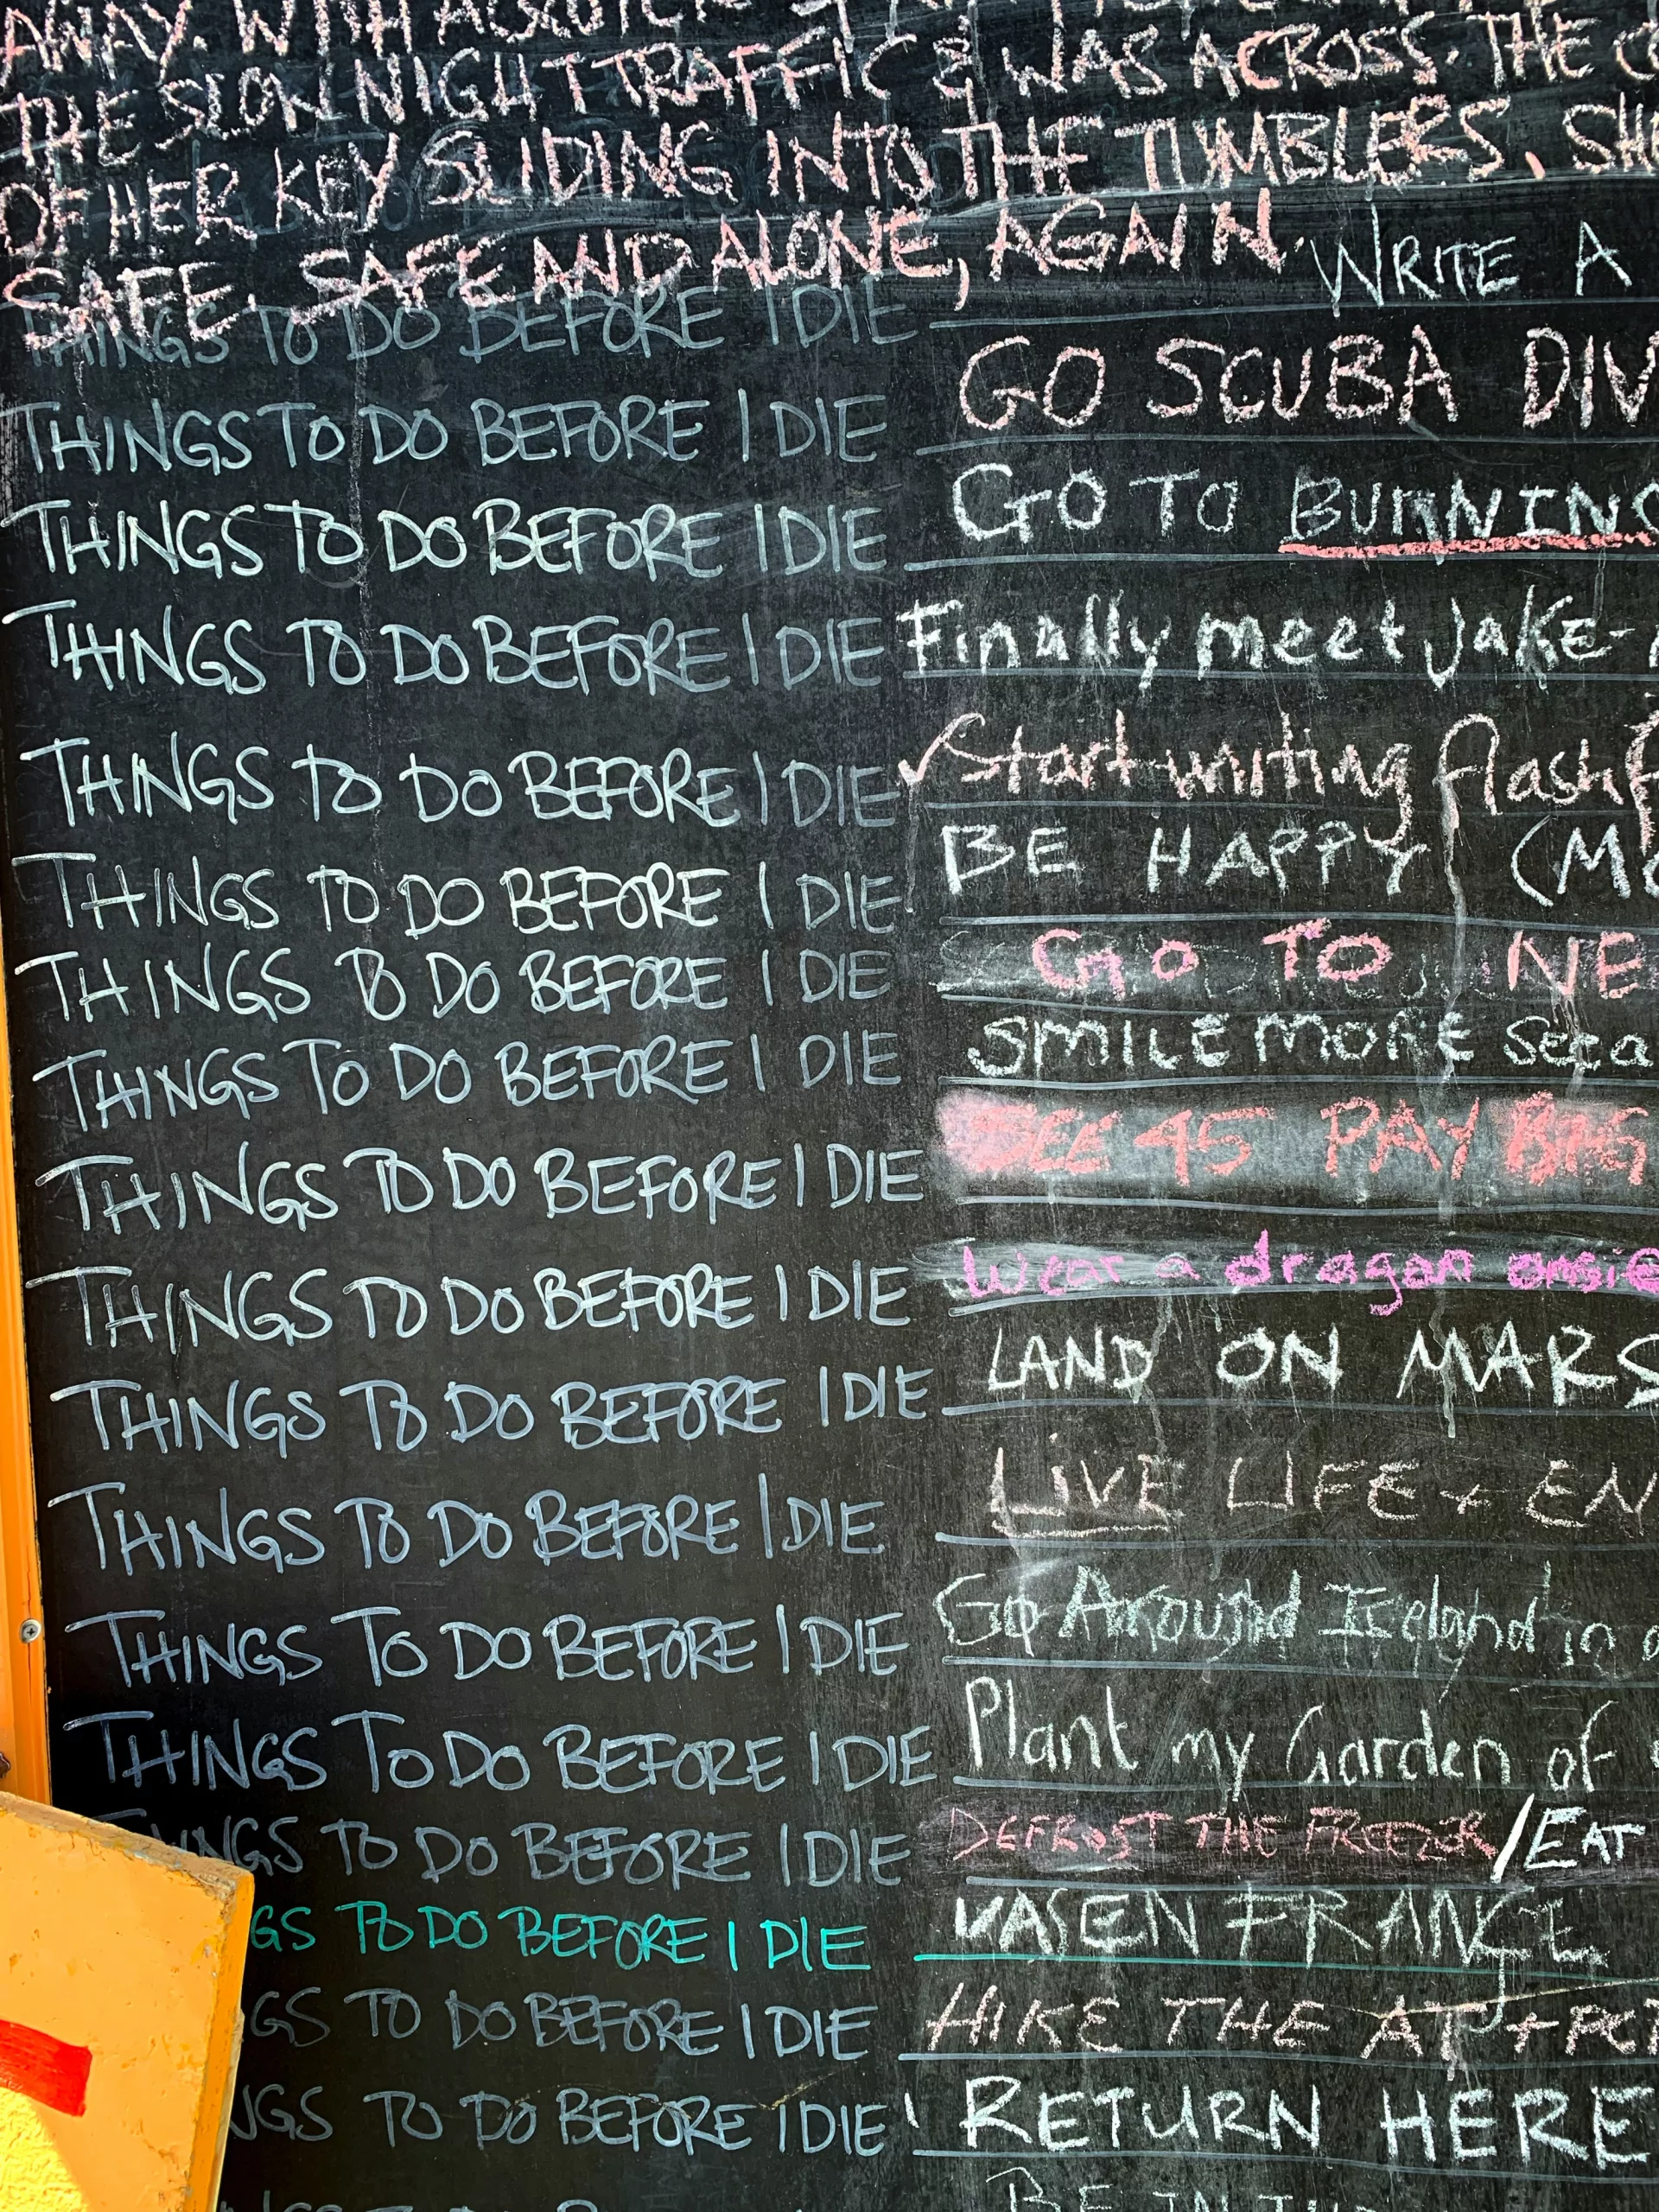 AWAY. WITH A
THE SLOW NIGHT TRAFFIC & WAS ACROSS. THE
OF HER KEY SLIDING INTO THE TUMBLERS. SHE
SAFE. SAFE AND ALONE, AGAIN.
THINGS TO DO BEFORE I DIE WRITE A
THINGS TO DO BEFORE I DIE GO SCUBA DIV
THINGS TO DO BEFORE I DIE GO TO BURNING
THINGS TO DO BEFORE I DIE Finally meet Jake-
THINGS TO DO BEFORE I DIE ✓Start writing flash f
THINGS TO DO BEFORE I DIE BE HAPPY (MO
THINGS TO DO BEFORE I DIE GO TO NE
THINGS TO DO BEFORE I DIE SMILE MORE
THINGS TO DO BEFORE I DIE SEE 45 PAY BIG
THINGS TO DO BEFORE I DIE Wear a dragon onsie
THINGS TO DO BEFORE I DIE LAND ON MARS
THINGS TO DO BEFORE I DIE LIVE LIFE + EN
THINGS TO DO BEFORE I DIE Go Around Iceland in a
THINGS TO DO BEFORE I DIE Plant my Garden of
NGS TO DO BEFORE I DIE DEFROST THE FREEZER/EAT
GS TO DO BEFORE I DIE FRANCE
GS TO DO BEFORE I DIE HIKE THE AT + PCT
NGS TO DO BEFORE I DIE RETURN HERE
BE IN